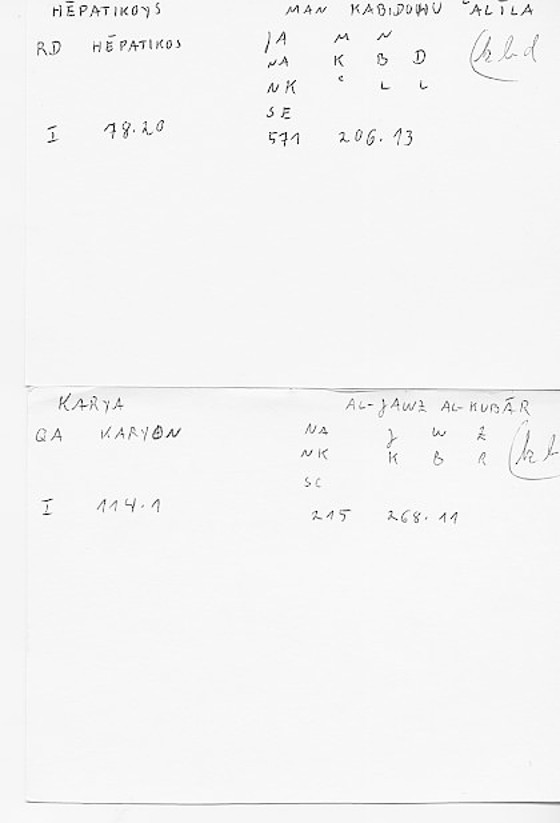 HĒPATIKOYS MAN KABIDUHU ʿALĪLA
RD HĒPATIKOS JA M N (k b d
NA K B D
NK ʿ L L
SE
I 78.20 571 206.13
KARYA AL-JAWZ AL-KUBĀR
QA KARYON NA J W Z (k b
NK K B R
SC
I 114.1 215 268.11